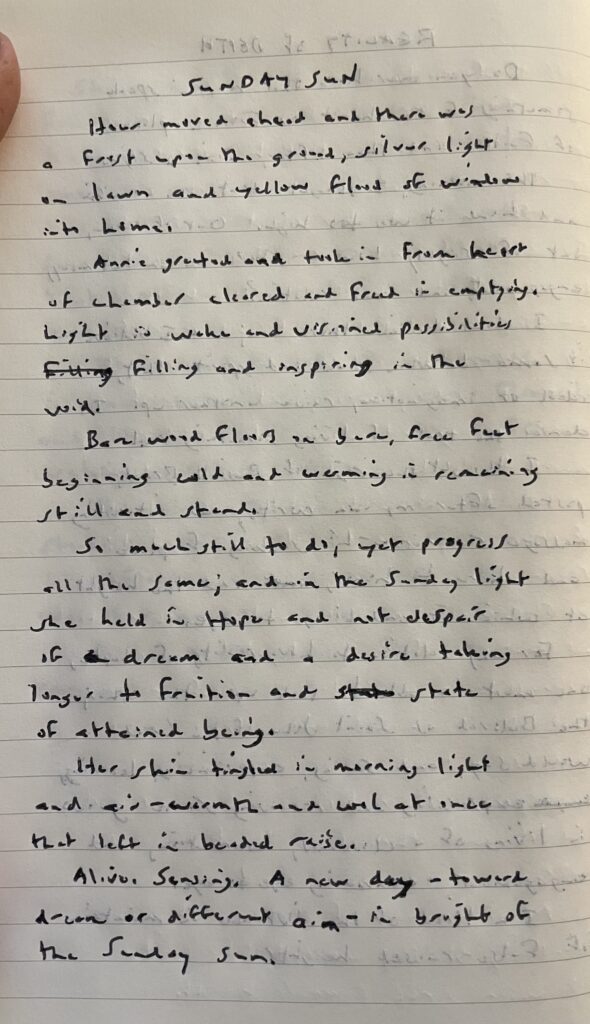 SUNDAY SUN
Hour moved ahead and there was
a frost upon the ground, silver light
on lawn and yellow flood of window
into home.
Annie greeted and took in from heart
of chamber cleared and freed in emptying.
Light in wake and visioned possibilities
filling and inspiring in the
void.
Bare wood floors on bare, free feet
beginning cold and warming in remaining
still and stead.
So much still to do, yet progress
all the same; and in the Sunday light
she held in Hope and not despair
of a dream and a desire taking
longer to fruition and state
of attained being.
Her skin tingled in morning light
and air - warmth and cool at once
that left in beaded raise.
Alive. Sensing. A new day - toward
dream or different aim - in bright of
the Sunday Sun.